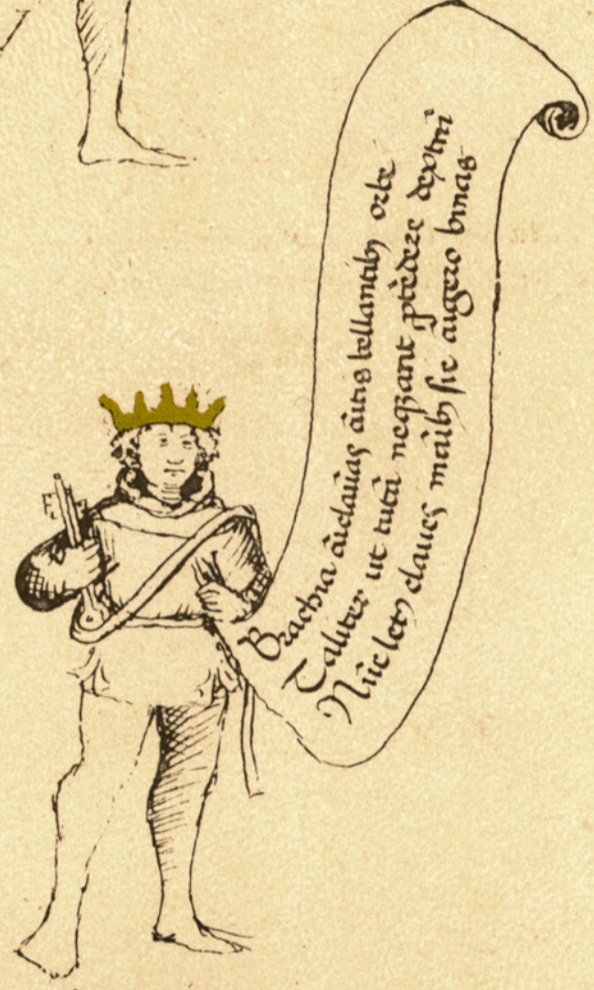 Brachia cũclauas cũtis bellantibꝫ orbe
Taliter ut tutũ neqꝫant ꝓtẽdere dextrũ
Nũc letꝰ claues mãibꝫ sic cũgero binas